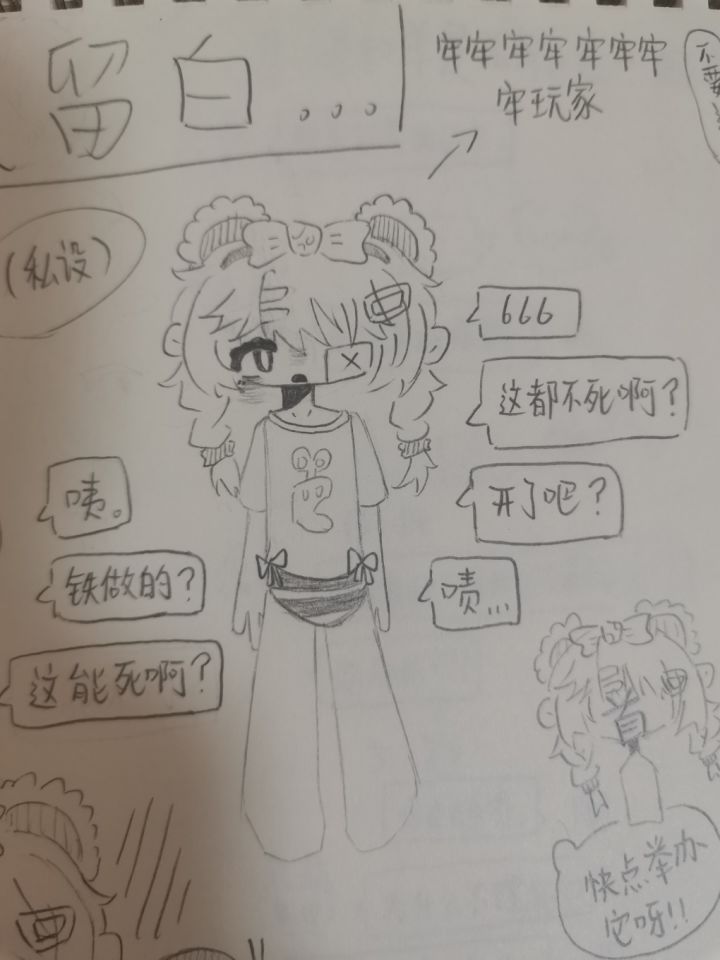 留白...
牢牢牢牢牢牢牢
牢玩家
不
要
(私设)
666
这都不死啊?
开了吧?
啧...
咦。
铁做的?
这能死啊?
快点举办
它呀!!